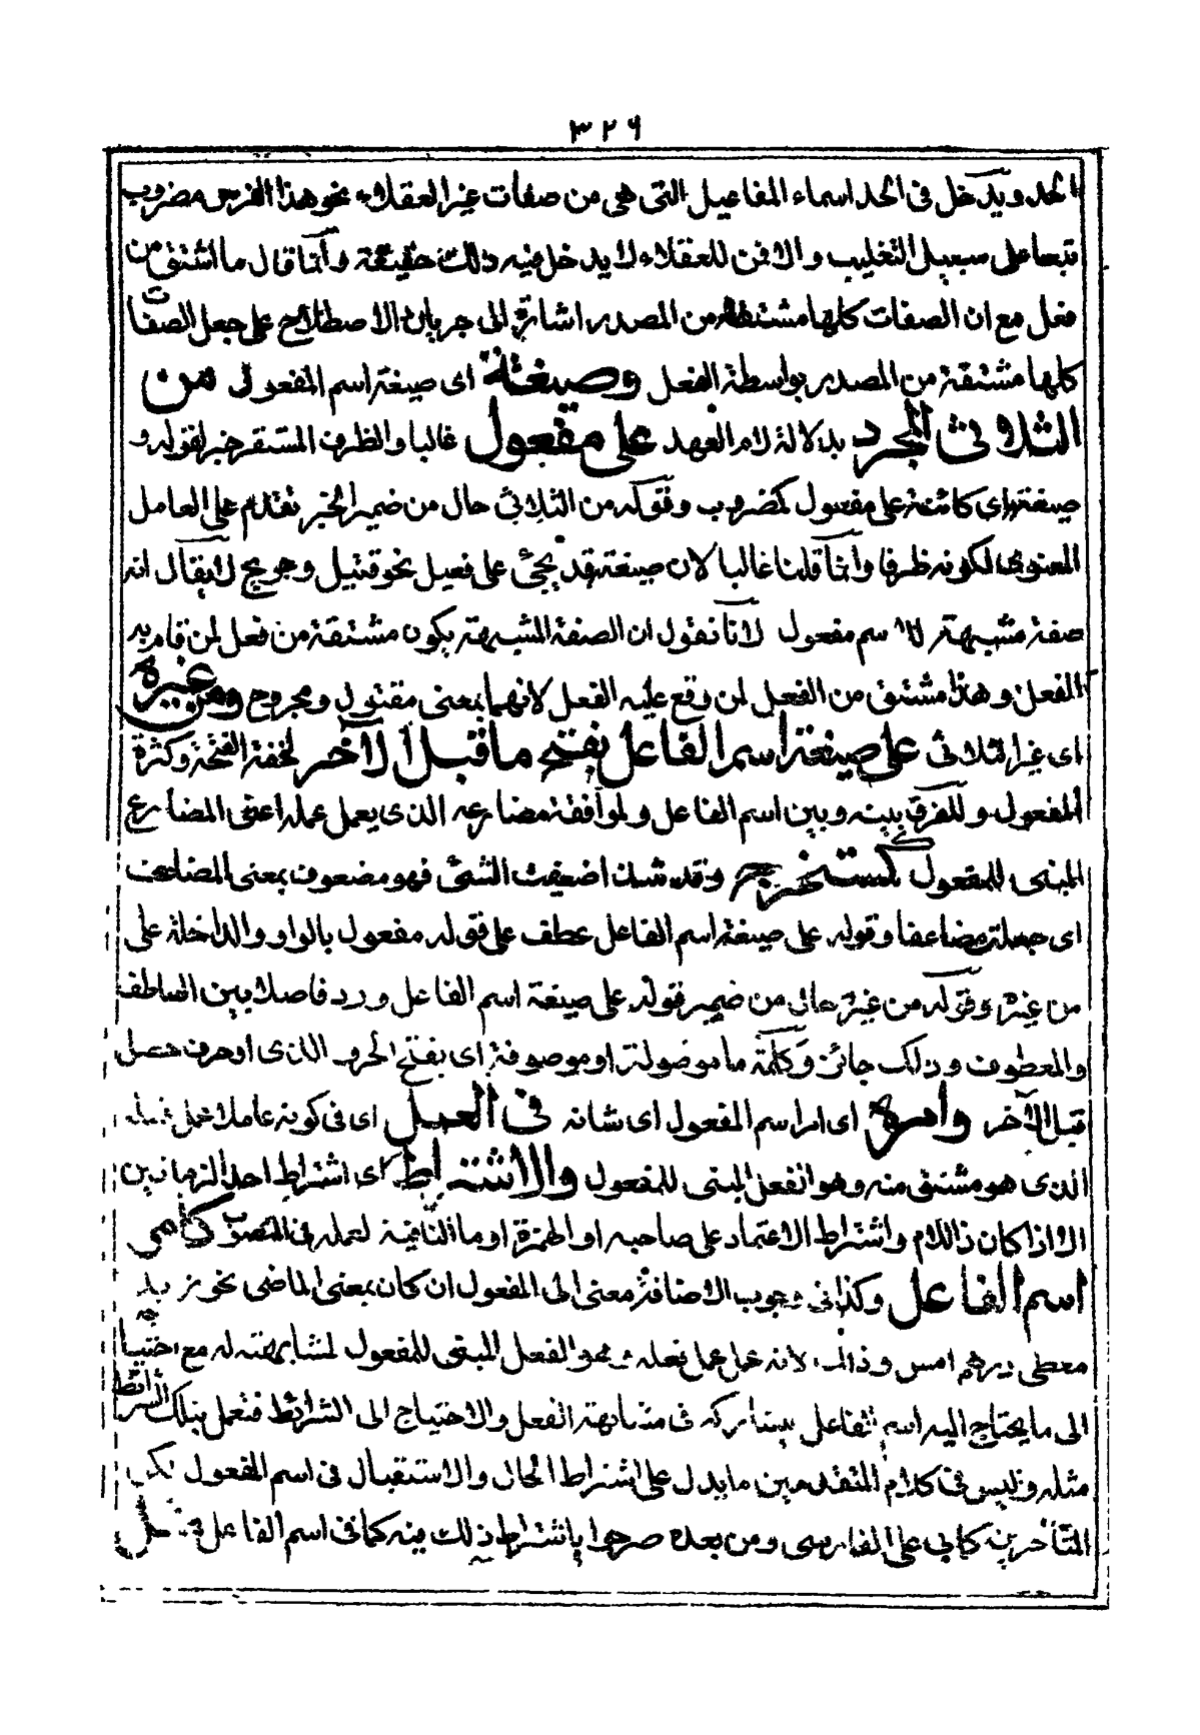 ٣٢٦
الحد ويدخل فى الحد اسماء المفاعيل التى هى من صفات غير العقلاء نحو هذا الفرس مضروب
تبعا على سبيل التغليب والا فمن للعقلاء لا يدخل فيه ذلك حقيقة وانما قال ما اشتق من
فعل مع ان الصفات كلها مشتقة من المصدر اشارة الى جريان الاصطلاح على جعل الصفات
كلها مشتقة من المصدر بواسطة الفعل وصيغته اى صيغة اسم المفعول من
الثلاثى المجرد بدلالة لام العهد على مفعول غالبا والظرف المستقر خبر لقوله و
صيغته اى كائنة على مفعول كمضروب وقوله من الثلاثى حال من ضمير الخبر تقدم على العامل
المعنوى لكونه ظرفا وانما قلنا غالبا لان صيغته قد يجئ على فعيل نحو قتيل وجريح لا يقال انه
صفة مشبهة لا اسم مفعول لانا نقول ان الصفة المشبهة يكون مشتقة من فعل لمن قام به
الفعل وهذا مشتق من الفعل لمن وقع عليه الفعل لانهما بمعنى مقتول ومجروح ومن غيره
اى غير الثلاثى على صيغة اسم الفاعل بفتح ما قبل الآخر لخفة الفتحة وكثرة
المفعول وللفرق بينه وبين اسم الفاعل ولموافقة مضارعه الذى يعمل عمله اعنى المضارع
المبنى للمفعول كمستخرج وقد شذ اضعفت الشئ فهو مضعوف بمعنى المضاعف
اى جعلته مضاعفا وقوله على صيغة اسم الفاعل عطف على قوله مفعول بالواو والداخلة على
من غيره وقوله من غيره حال من ضمير قوله على صيغة اسم الفاعل ورد فاصلا بين العاطف
والمعطوف وذلك جائز وكلمة ما موصولة او موصوفة اى بفتح الحرف الذى او حرف حصل
قبل الآخر وامره اى امر اسم المفعول اى شانه فى العمل اى فى كونه عاملا عمل فعله
الذى هو مشتق منه وهو الفعل المبنى للمفعول والاشتراط اى اشتراط احد الزمانين
الا اذا كان ذا اللام واشتراط الاعتماد على صاحبه او الهمزة او ما النافية لعمله فى المنصوب كامر
اسم الفاعل وكذا فى وجوب الاضافة معنى الى المفعول ان كان بمعنى الماضى نحو زيد
معطى درهم امس وذلك لانه عمل عمل فعله وهو الفعل المبنى للمفعول لمشابهته له مع احتياجه
الى ما يحتاج اليه اسم الفاعل بمشاركه فى مشابهة الفعل والاحتياج الى الشرائط فتعمل بتلك الشرائط
مثله وليس فى كلام المتقدمين ما يدل على اشتراط الحال والاستقبال فى اسم المفعول لكن
المتأخرين كابى على الفارسى ومن بعده صرحوا باشتراط ذلك فيه كما فى اسم الفاعل